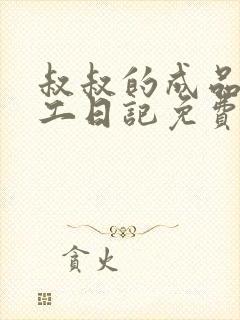 叔叔的成品
工日記免費
貪火